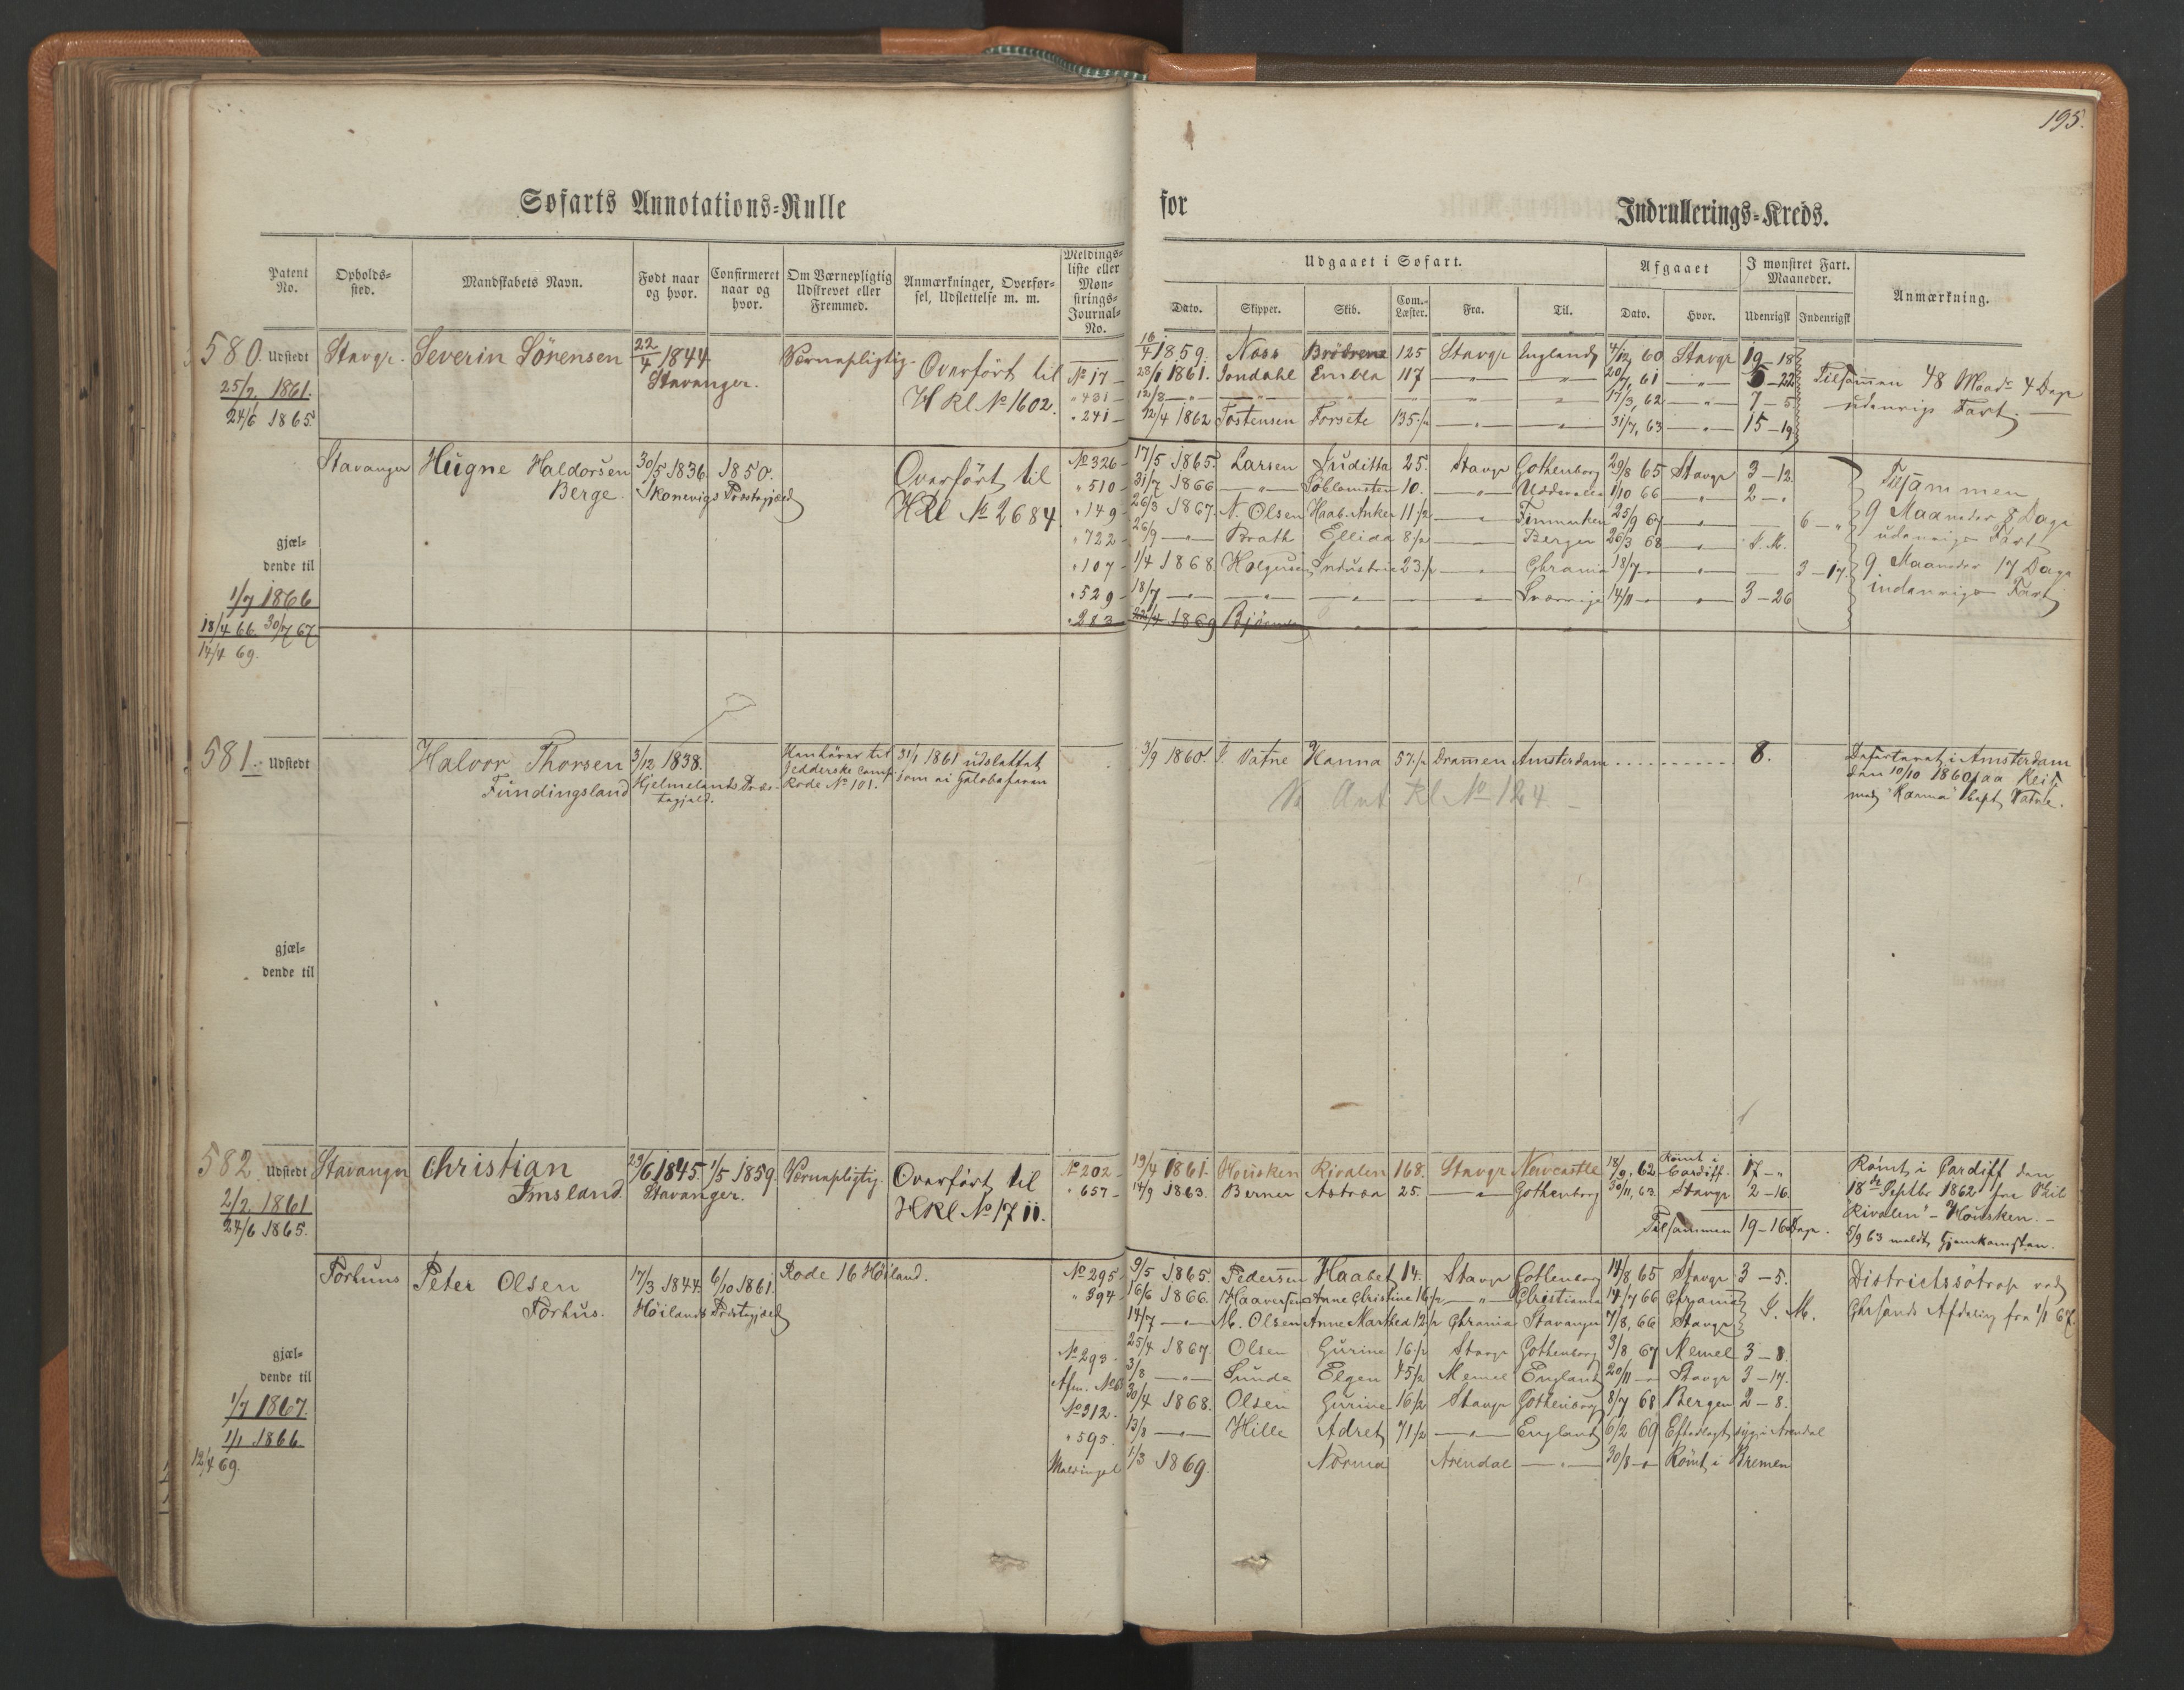 195.
Søfarts Annotations-Rulle for Indrullerings-Kreds.
Patent No.
Opholds-sted.
Mandskabets Navn.
Født naar og hvor.
Confirmeret naar og hvor.
Om Værnepligtig Udskrevet eller Fremmed.
Anmærkninger, Overfør-sel, Udslettelse m. m.
Meldings-liste eller Møn-strings-Journal-No.
Udgaaet i Søfart.
Afgaaet
I mønstret Fart. Maaneder.
Anmærkning.
Dato. Skipper. Skib. Com.-Læster. Fra. Til. Dato. Hvor. Udenrigsk Indenrigsk
580. Udstedt Stavgr. Severin Sörensen 22/4 1844 Værnepligtig. Overfört til 16/4 1859. Næss Brödrene 125 Stavgr England 4/12 60 Stavgr 19–18
25/2 1861. Stavanger. H Rl No 1602. No 17 – 28/1 1861. Jondahl Embla 117 – " – – " – 20/7, 61 – " – 5–22 Tilsammen 48 Maad 4 Dage
24/6 1865. " 431 – 12/8 – " – – " – – " – 17/3, 62 – " – 7–5 udenrigs Fart. –
" 241 – 12/4 1862 Tostensen Forsete 135 ½ – " – – " – 31/7, 63 – " – 15–19
Stavanger Hugne Haldorsen 30/5 1836. 1850. Overfört til No 326 – 17/5 1865. Larsen Juditta 25. Stavgr Gothenborg 29/8 65 Stavgr 3–12. Tilsammen
Berge. Skonevigs Præstegjeld HRl No 2684 " 510 – 31/7 1866 – " – Soblomsten 10. – " – Uddevalla 1/10 66 – " – 2 – " 9 Maaneder 8 Dage
" 149 – 26/3 1867. N. Olsen Haab. Anker 11 ½ Finmarken 25/9 67 – " – 6 – " udenrigs Fart
gjæl-dende til " 722 – 26/9 – " – Brath Ellida 8 ½ Bergen 26/3 68 – " – I. M.
" 107 – 1/4 1868 Holgersen Industrie 23 ½ Chrania 18/7 – " – 3–17. 9 Maaneder 17 Dage
1/7 1866 " 529 – 18/7 – " – – " – – " – Sverrige 14/11 – " – 3–26 indenrigs Fart
18/4 66. 30/7 67 " 283 22/4 1869
14/4 69.
581. Udstedt Halvor Thorsen 3/12 1838. Henhörer til 31/1 1861 udslettet 3/9 1860. J. Vatne Hanna 57 ½ Drammen Amsterdam 8. Deserteret i Amsterdam
Fundingsland Hjelmelands Præstegjeld. Jedderske Comp. som ei Golobefaren den 10/10 1860 paa Reise
Rode No 101. med "Hanna" Capt Vatne.
Ant Rl No 124 –
gjæl-dende til
582. Udstedt Stavanger Christian 29/6 1845. 1/5 1859. Værnepligtig. Overfört til No 202 – 19/4 1861. Housken Rivalen 168. Stavgr Newcastle 18/9, 62 Römt i Cardiff. 17 – " Römt i Cardiff den
2/2 1861 Imsland. Stavanger. HRl No 1711. " 657 – 14/9 1863. Berner Astræa 25. – " – Gothenborg 30/11, 63. Stavgr 2–16. 18de Septbr 1862 fra Skib
24/6 1865. Tilsammen 19–16 Dage. "Rivalen" – Housken. –
5/9 63 meldt Hjemkomsten.
Forhuus Peter Olsen 17/3 1844. 6/10 1861. Rode 16 Höiland. No 295 – 9/5 1865. Pedersen Haabet 14. Stavgr Gothenborg 14/8 65 Stavgr 3–5. Districtssötrop ved
Forhus. Höilands Præstegjeld " 394 – 16/6 1866. Haaversen Anne Christine 16 ½ – " – Christiania 14/7 66 Chrania I. M. Chrsands Afdeling fra 1/1 67.
14/7 – " – M. Olsen Anne Marthea 12 ½ Chrania Stavanger 7/8, 66 Stavgr
gjæl-dende til No 293. 25/4 1867. Olsen Gurine 16 ½ Stavgr Gothenborg 3/8 67 Memel 3–8.
Afm. No 63 3/8 – " – Sunde Elgen 45 ½ Memel England 20/11 – " Stavgr 3–17.
1/7 1867. No 312. 30/4 1868. Olsen Gurine 16 ½ Stavgr Gothenborg 8/7 68 Bergen 2–8.
1/1 1866. " 595. 13/8 – " – Hille Adret 71 ½ – " – England 6/2 69 Efterlagt syg i Arendal
12/4 69. 1/3 1869. Norma Arendal – " – 30/8 – " Römt i Bremen